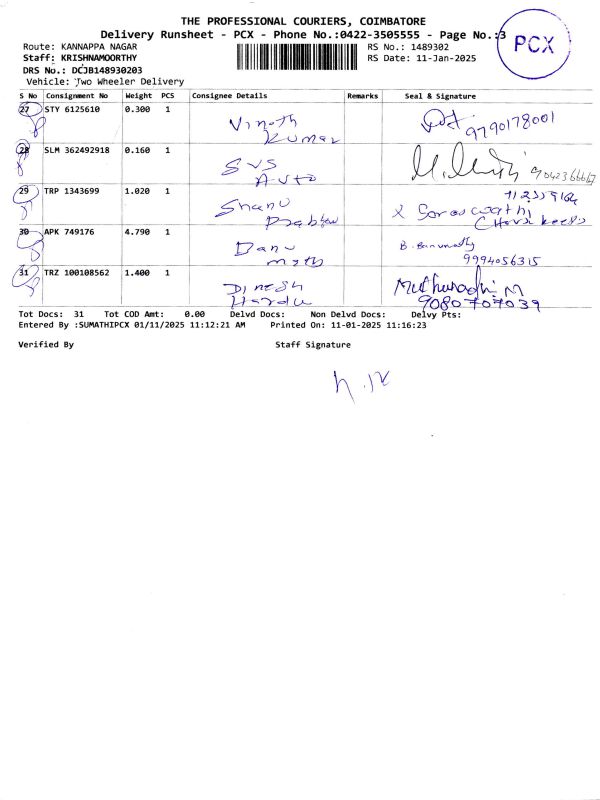 THE PROFESSIONAL COURIERS, COIMBATORE
Delivery Runsheet - PCX - Phone No.:0422-3505555 - Page No.:3
PCX
Route: KANNAPPA NAGAR
RS No.: 1489302
Staff: KRISHNAMOORTHY
RS Date: 11-Jan-2025
DRS No.: DCJB148930203
Vehicle: Two Wheeler Delivery
S No Consignment No Weight PCS Consignee Details Remarks Seal & Signature
27 STY 6125610 0.300 1 Vinoth Kumar 9790178001
28 SLM 362492918 0.160 1 SVS Auto
29 TRP 1343699 1.020 1 Shanu
30 APK 749176 4.790 1 Banu 9994056315
31 TRZ 100108562 1.400 1 Dinesh 9080707039
Tot Docs: 31 Tot COD Amt: 0.00 Delvd Docs: Non Delvd Docs: Delvy Pts:
Entered By :SUMATHIPCX 01/11/2025 11:12:21 AM Printed On: 11-01-2025 11:16:23
Verified By Staff Signature